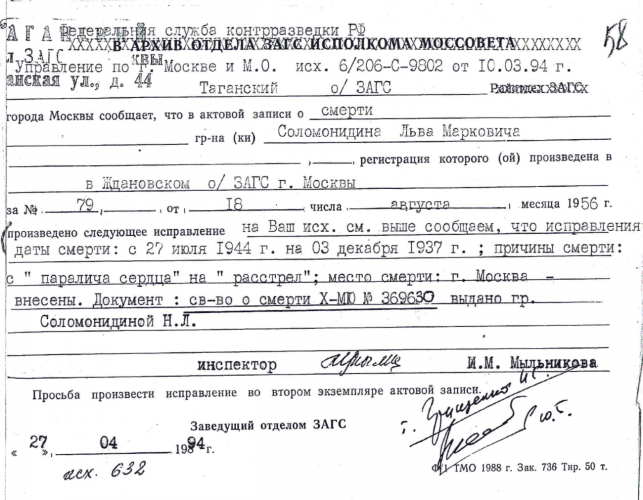 Федеральная служба контрразведки РФ 58
В АРХИВ ОТДЕЛА ЗАГС ИСПОЛКОМА МОССОВЕТА
Управление по г. Москве и М.О. исх. 6/206-С-9802 от 10.03.94 г.
анская ул., д. 44 Таганский о/ЗАГС
города Москвы сообщает, что в актовой записи о смерти
гр-на (ки) Соломонидина Льва Марковича
, регистрация которого (ой) произведена в
в Ждановском о/ЗАГС г. Москвы
за № 79 , от 18 числа августа , месяца 1956 г.
произведено следующее исправление на Ваш исх. см. выше сообщаем, что исправления
даты смерти: с 27 июля 1944 г. на 03 декабря 1937 г. ; причины смерти:
с " паралича сердца" на " расстрел"; место смерти: г. Москва -
внесены. Документ : св-во о смерти X-МЮ № 369630 выдано гр.
Соломонидиной Н.Л.
инспектор И.М. Мыльникова
Просьба произвести исправление во втором экземпляре актовой записи.
Заведущий отделом ЗАГС
« 27 » 04 1994г.
исх. 632
ТМО 1988 г. Зак. 736 Тир. 50 т.